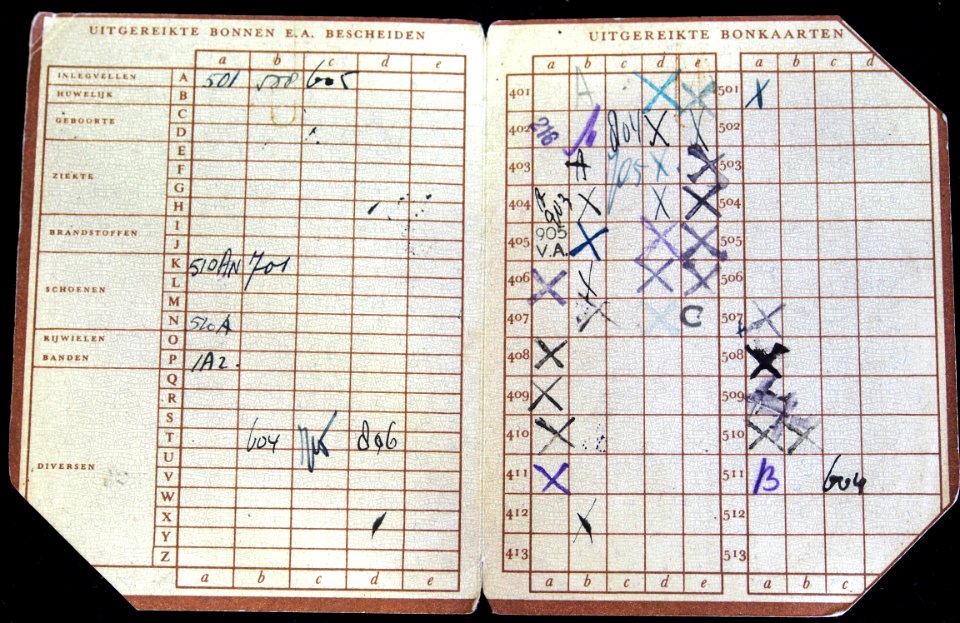 UITGEREIKTE BONNEN E.A. BESCHEIDEN
a b c d e
INLEGVELLEN A 501 605
HUWELIJK B
C
GEBOORTE D
E
F
ZIEKTE G
H
I
BRANDSTOFFEN J
K 510AN 701
L
SCHOENEN M
N 520A
O
RIJWIELEN
BANDEN P 1A2.
Q
R
S
T 604 806
U
DIVERSEN V
W
X
Y
Z
a b c d e
UITGEREIKTE BONKAARTEN
a b c d e a b c d
401 A X X 501 X
402 216 804 X X 502
403 A 705 X X 503
404 A 803 X X X 504
405 905 V.A. X X X 505
406 X X X X 506
407 X X C 507 X
408 X 508 X
409 X 509
410 X 510 X X
411 X 511 B 604
412 X 512
413 513
a b c d e a b c